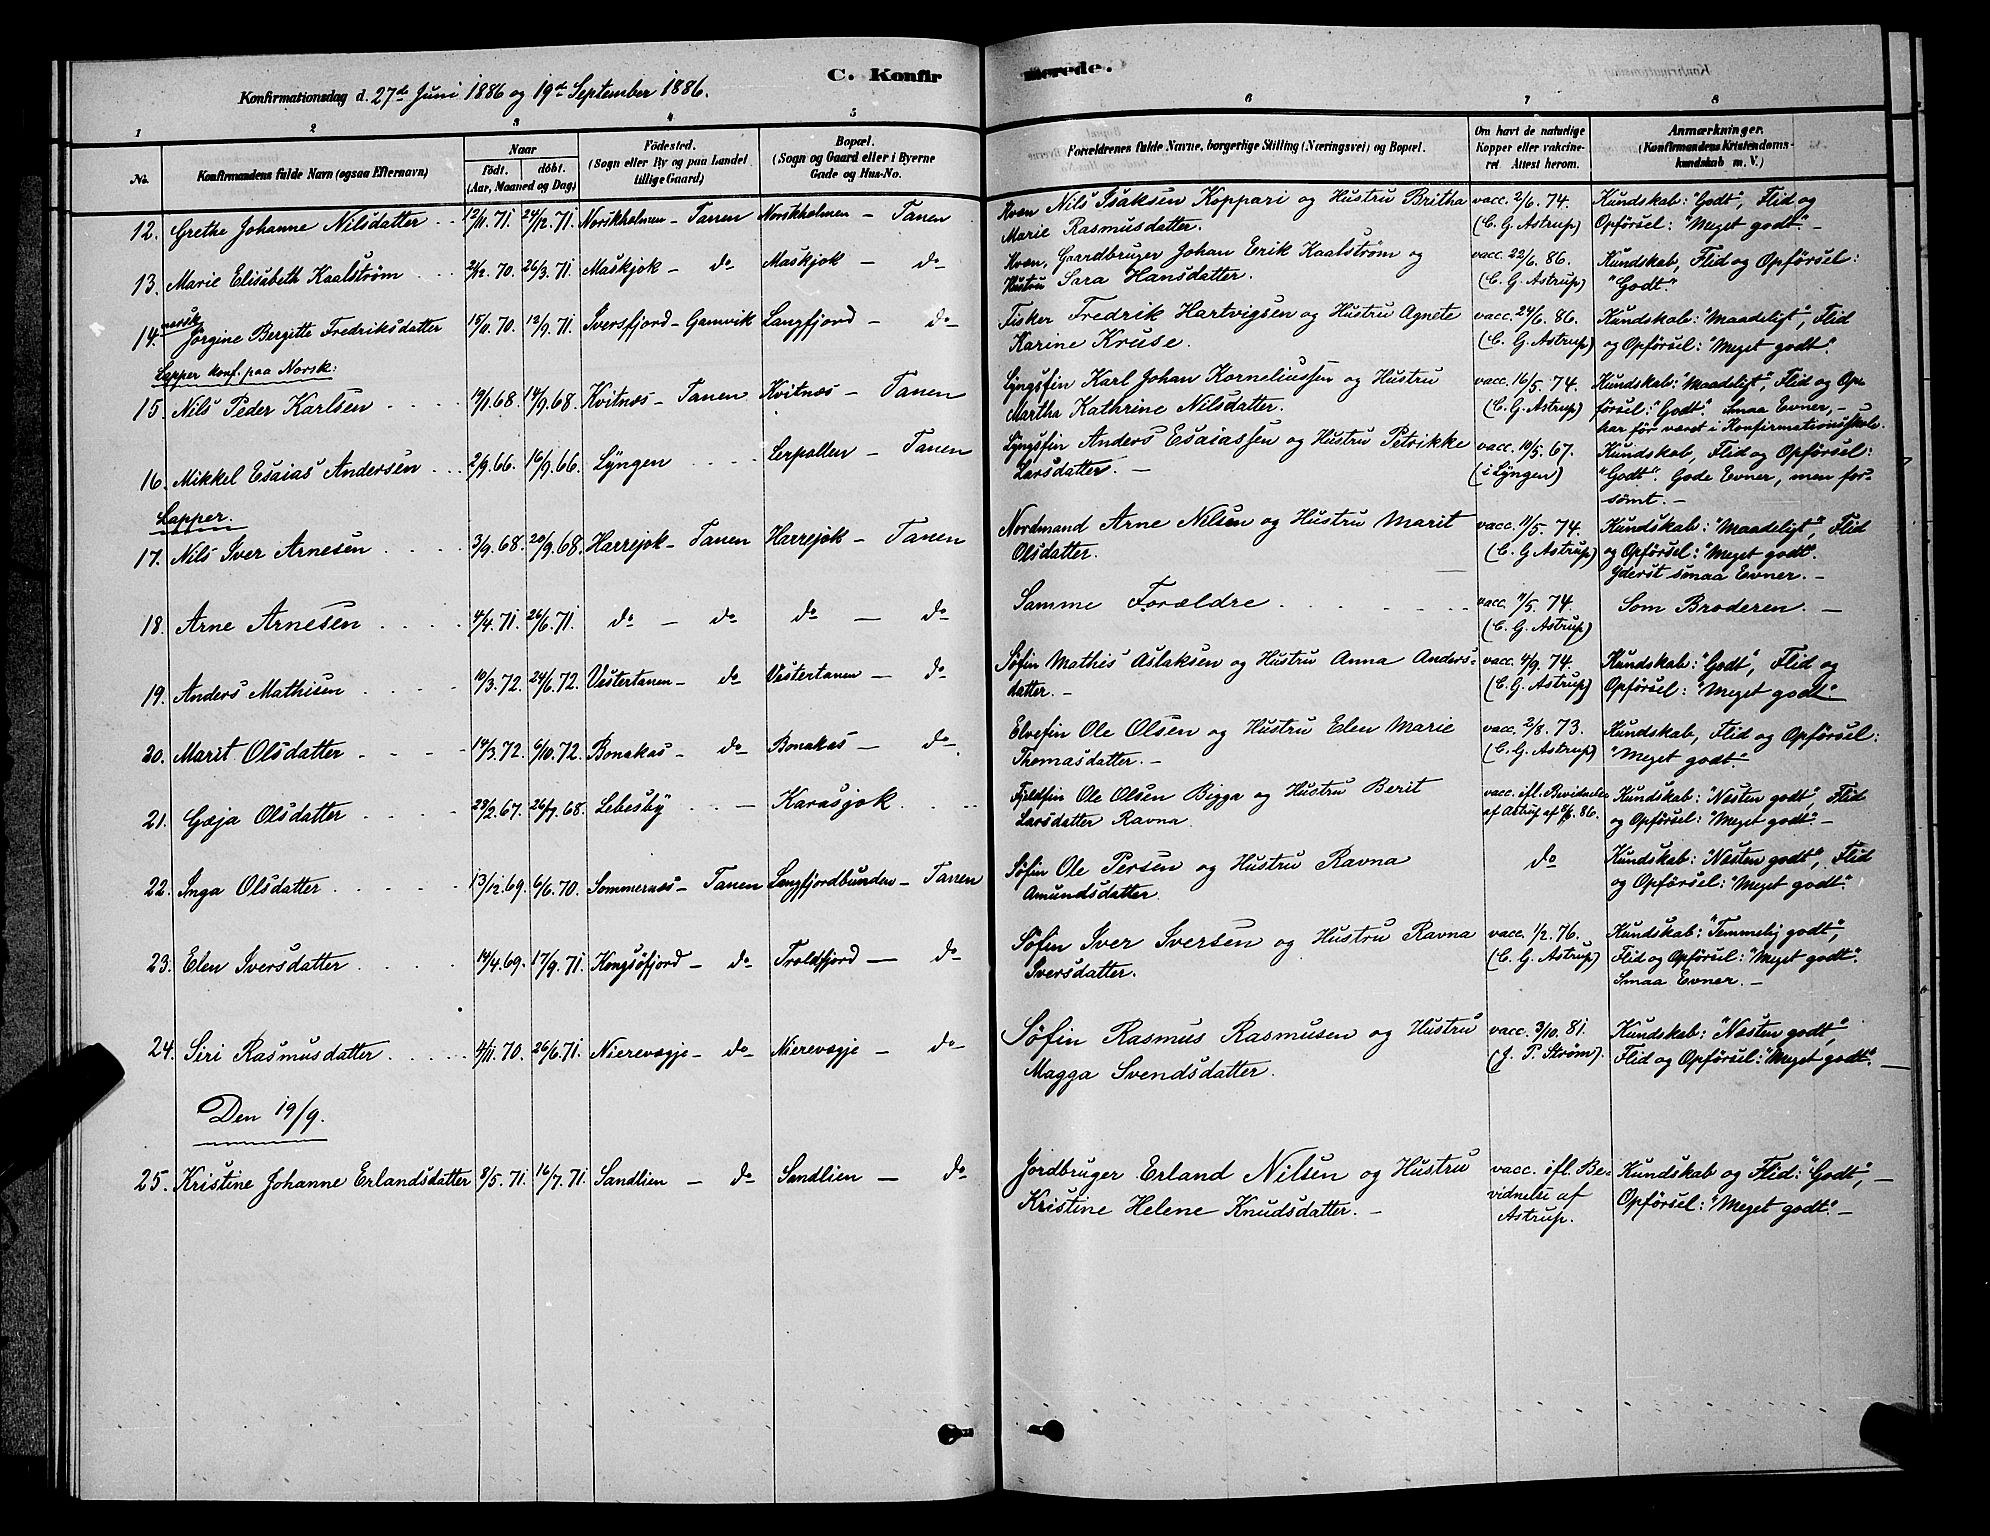 C. Konfirmerede.
Konfirmationsdag d. 27de Juni 1886 og 19de September 1886.
1 2 3 4 5 6 7 8
No.
Konfirmandens fulde Navn (ogsaa Efternavn)
Naar
födt. döbt.
(Aar, Maaned og Dag)
Födested.
(Sogn eller By og paa Landet
tillige Gaard)
Bopæl.
(Sogn og Gaard eller i Byerne
Gade og Hus-No.
Forældrenes fulde Navne, borgerlige Stilling (Næringsvei) og Bopæl.
Om havt de naturlige
Kopper eller vakcine-
ret Attest herom.
Anmærkninger.
(Konfirmandens Kristendoms-
kundskab m. V.)
12. Grethe Johanne Nilsdatter 12/11. 71. 24/12. 71. Norskholmen - Tanen Norskholmen - Tanen Kven Nils Isaksen Koppari og Hustru Britha vacc. 2/6. 74. Kundskab: "Godt", Flid og
Marie Rasmusdatter. (C. G. Astrup) Opförsel: "Meget godt".
13. Marie Elisabeth Kaalström 21/2. 70. 26/3. 71. Maskjok - do Maskjok - do Kven, Gaardbruger Johan Erik Kaalström og vacc. 22/6. 86. Kundskab, Flid og Opförsel:
Hustru Sara Hansdatter. (C. G. Astrup) "Godt".
norsk
14. Jörgine Bergitte Fredriksdatter 15/11. 70. 12/9. 71. Iversfjord - Gamvik Langfjord - do Fisker Fredrik Hartvigsen og Hustru Agnete vacc. 24/6. 86. Kundskab: "Maadeligt", Flid
Karine Kruse. (C. G. Astrup) og Opförsel: "Meget godt".
Lapper konf. paa Norsk:
15. Nils Peder Karlsen 19/1. 68. 14/9. 68. Kvitnæs - Tanen Kvitnæs - Tanen Lyngsfin Karl Johan Korneliussen og Hustru vacc. 16/5. 74. Kundskab: "Maadeligt", Flid og Op-
Martha Kathrine Nilsdatter. (C. G. Astrup) förselː "Godt". Smaa Evner, -
har för været i Konfirmationsskole.
16. Mikkel Esaias Andersen 2/9. 66. 16/9. 66. Lyngen Lerpollen - Tanen Lyngsfin Anders Esaiassen og Hustru Petrikke vacc. 10/5. 67. Kundskab, Flid og Opförsel:
Larsdatter. - (i Lyngen) "Godt". Gode Evner, men for-
sömt. -
Lapper.
17. Nils Iver Arnesen 3/9. 68. 20/9. 68. Harrejok - Tanen Harrejok - Tanen Nordmand Arne Nilsen og Hustru Marit vacc. 11/5. 74. Kundskab: "Maadeligt", Flid
Olsdatter. (C. G. Astrup) og Opförsel: "Meget godt".
Yderst smaa Evner. -
18. Arne Arnesen 4/4. 71. 26/6. 71. do - do do - do Samme Forældre vacc. 11/5. 74. Som Broderen. -
(C. G. Astrup)
19. Anders Mathisen 10/3. 72. 24/6. 72. Vestertanen - do Vestertanen - do Söfin Mathis Aslaksen og Hustru Anna Anders- vacc. 4/9. 74. Kundskab: "Godt", Flid og
datter. - (C. G. Astrup) Opförsel: "Meget godt".
20. Marit Olsdatter 14/3. 72. 6/10. 72. Bonakas - do Bonakas - do Elvefin Ole Olsen og Hustru Elen Marie vacc. 2/8. 73. Kundskab, Flid og Opförsel:
Thomasdatter. - (C. G. Astrup) "Meget godt".
21. Gæja Olsdatter 28/2. 67. 26/7. 68. Lebesby Karasjok Fjeldfin Ole Olsen Bigga og Hustru Berit vacc. ifl. Bevidnelse Kundskab: "Næsten godt", Flid
Larsdatter Ravna af Astrup af 86. og Opförsel: "Meget godt". -
22. Inga Olsdatter 13/12. 69. 6/6. 70. Sommernæs - Tanen Langfjordbunden - Tanen Söfin Ole Persen og Hustru Ravna do Kundskab: "Næsten godt", Flid
Amundsdatter. og Opförsel: "Meget godt".
23. Elen Iversdatter 14/4. 69. 17/9. 71. Kongsöfjord - do Troldfjord - do Söfin Iver Iversen og Hustru Ravna vacc. 1/2. 76. Kundskab: "Temmelig godt",
Iversdatter. (C. G. Astrup) Flid og Opförsel: "Meget godt".
Smaa Evner. -
24. Siri Rasmusdatter 4/11. 70. 26/6. 71. Nierevagje - do Nierevagje - do Söfin Rasmus Rasmusen og Hustru vacc. 3/10. 81. Kundskab: "Næsten godt",
Magga Svendsdatter. (J. P. Ström). Flid og Opförsel: "Meget godt". -
Den 19/9.
25. Kristine Johanne Erlandsdatter 8/5. 71. 16/7. 71. Sandlien - do Sandlien - do Jordbruger Erland Nilsen og Hustru vacc. ifl. Be- Kundskab og Flid: "Godt", -
Kristine Helene Knudsdatter. - vidnelse af Opförsel: "Meget godt". -
Astrup.